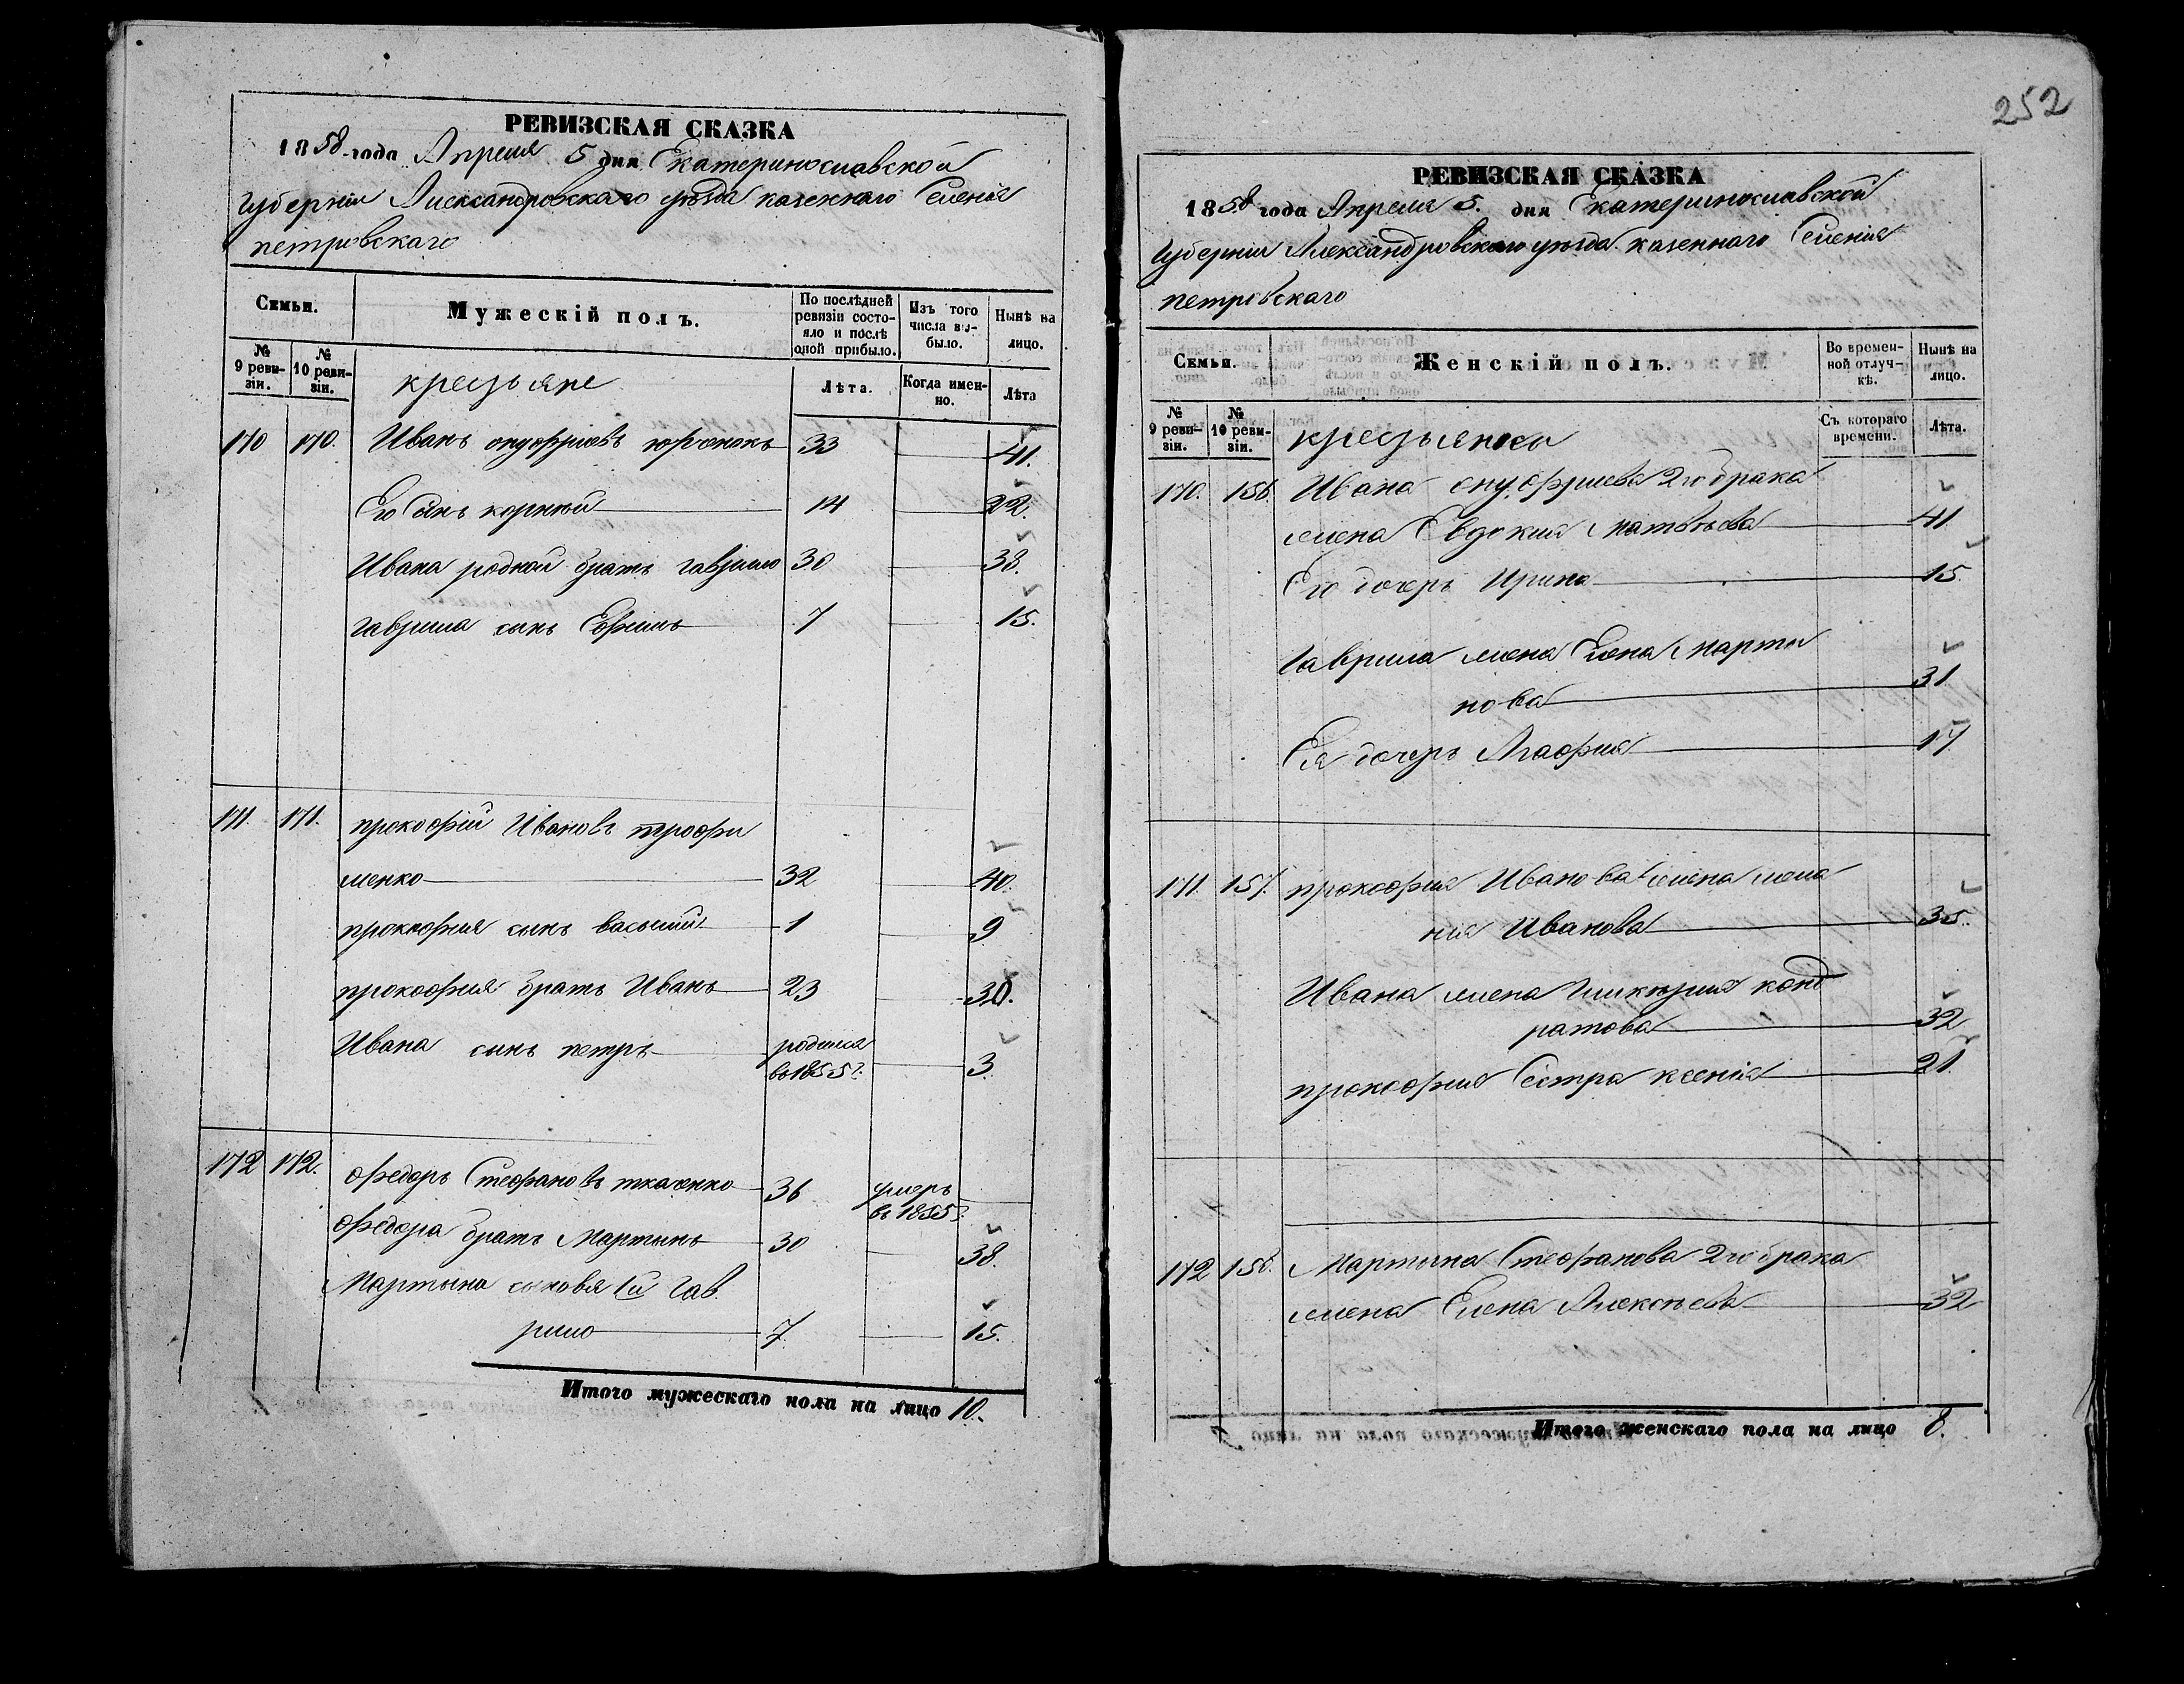 РЕВИЗСКАЯ СКАЗКА
1858 года Апреля 5 дня Екатеринославской
губерніи Александровскаго уѣзда казеннаго Селенія
петровскаго
Семьи.
Мужескій полъ.
По послѣдней ревизіи состояло и послѣ оной прибыло.
Изъ того числа выбыло.
Нынѣ на лицо.
№ 9 ревизіи.
№ 10 ревизіи.
крестьяне
Лѣта.
Когда именно.
Лѣта
170 170. Иванъ онуфріевъ 33 41.
Его Сынъ корнѣй 14 22.
Ивана родной братъ гаврило 30 38.
гаврила сынъ Ефимъ 7 15.
171. 171. прокофій Ивановъ трофи
менко 32 40.
прокофия сынъ василий 1 9
прокофия братъ Иванъ 23 30.
Ивана сынъ петръ родился в 1855 г. 3
172 172. федоръ Стефановъ ткаченко 36 умеръ в 1855 г.
федора братъ Мартынъ 30 38.
Мартына сыновя 1й гав.
рило 7 15.
Итого мужескаго пола на лицо 10.
252
РЕВИЗСКАЯ СКАЗКА
1858 года Апреля 5. дня Екатеринославской
Губерніи Александровскаго уѣзда казеннаго Селения
петровскаго
Семьи.
Женскій полъ.
Во временной отлучкѣ.
Нынѣ на лицо.
№ 9 ревизіи.
№ 10 ревизіи.
крестьянки
Съ котораго времени.
Лѣта.
170. 156. Ивана онуфриева 2го брака
жена Евдокия Матвѣева 41
Его дочерь Ирина 15
Гаврила жена Елена Марты
нова 31
Ея дочерь Агафия 17
171. 157. прокофия Иванова жена мела
ния Иванова 35.
Ивана жена Гликерия конд
ратова 32
прокофия Сестра ксенія 21.
172 158. Мартына Стефанова 2го брака
жена Елена Алексѣева 32
Итого женскаго пола на лицо 8.